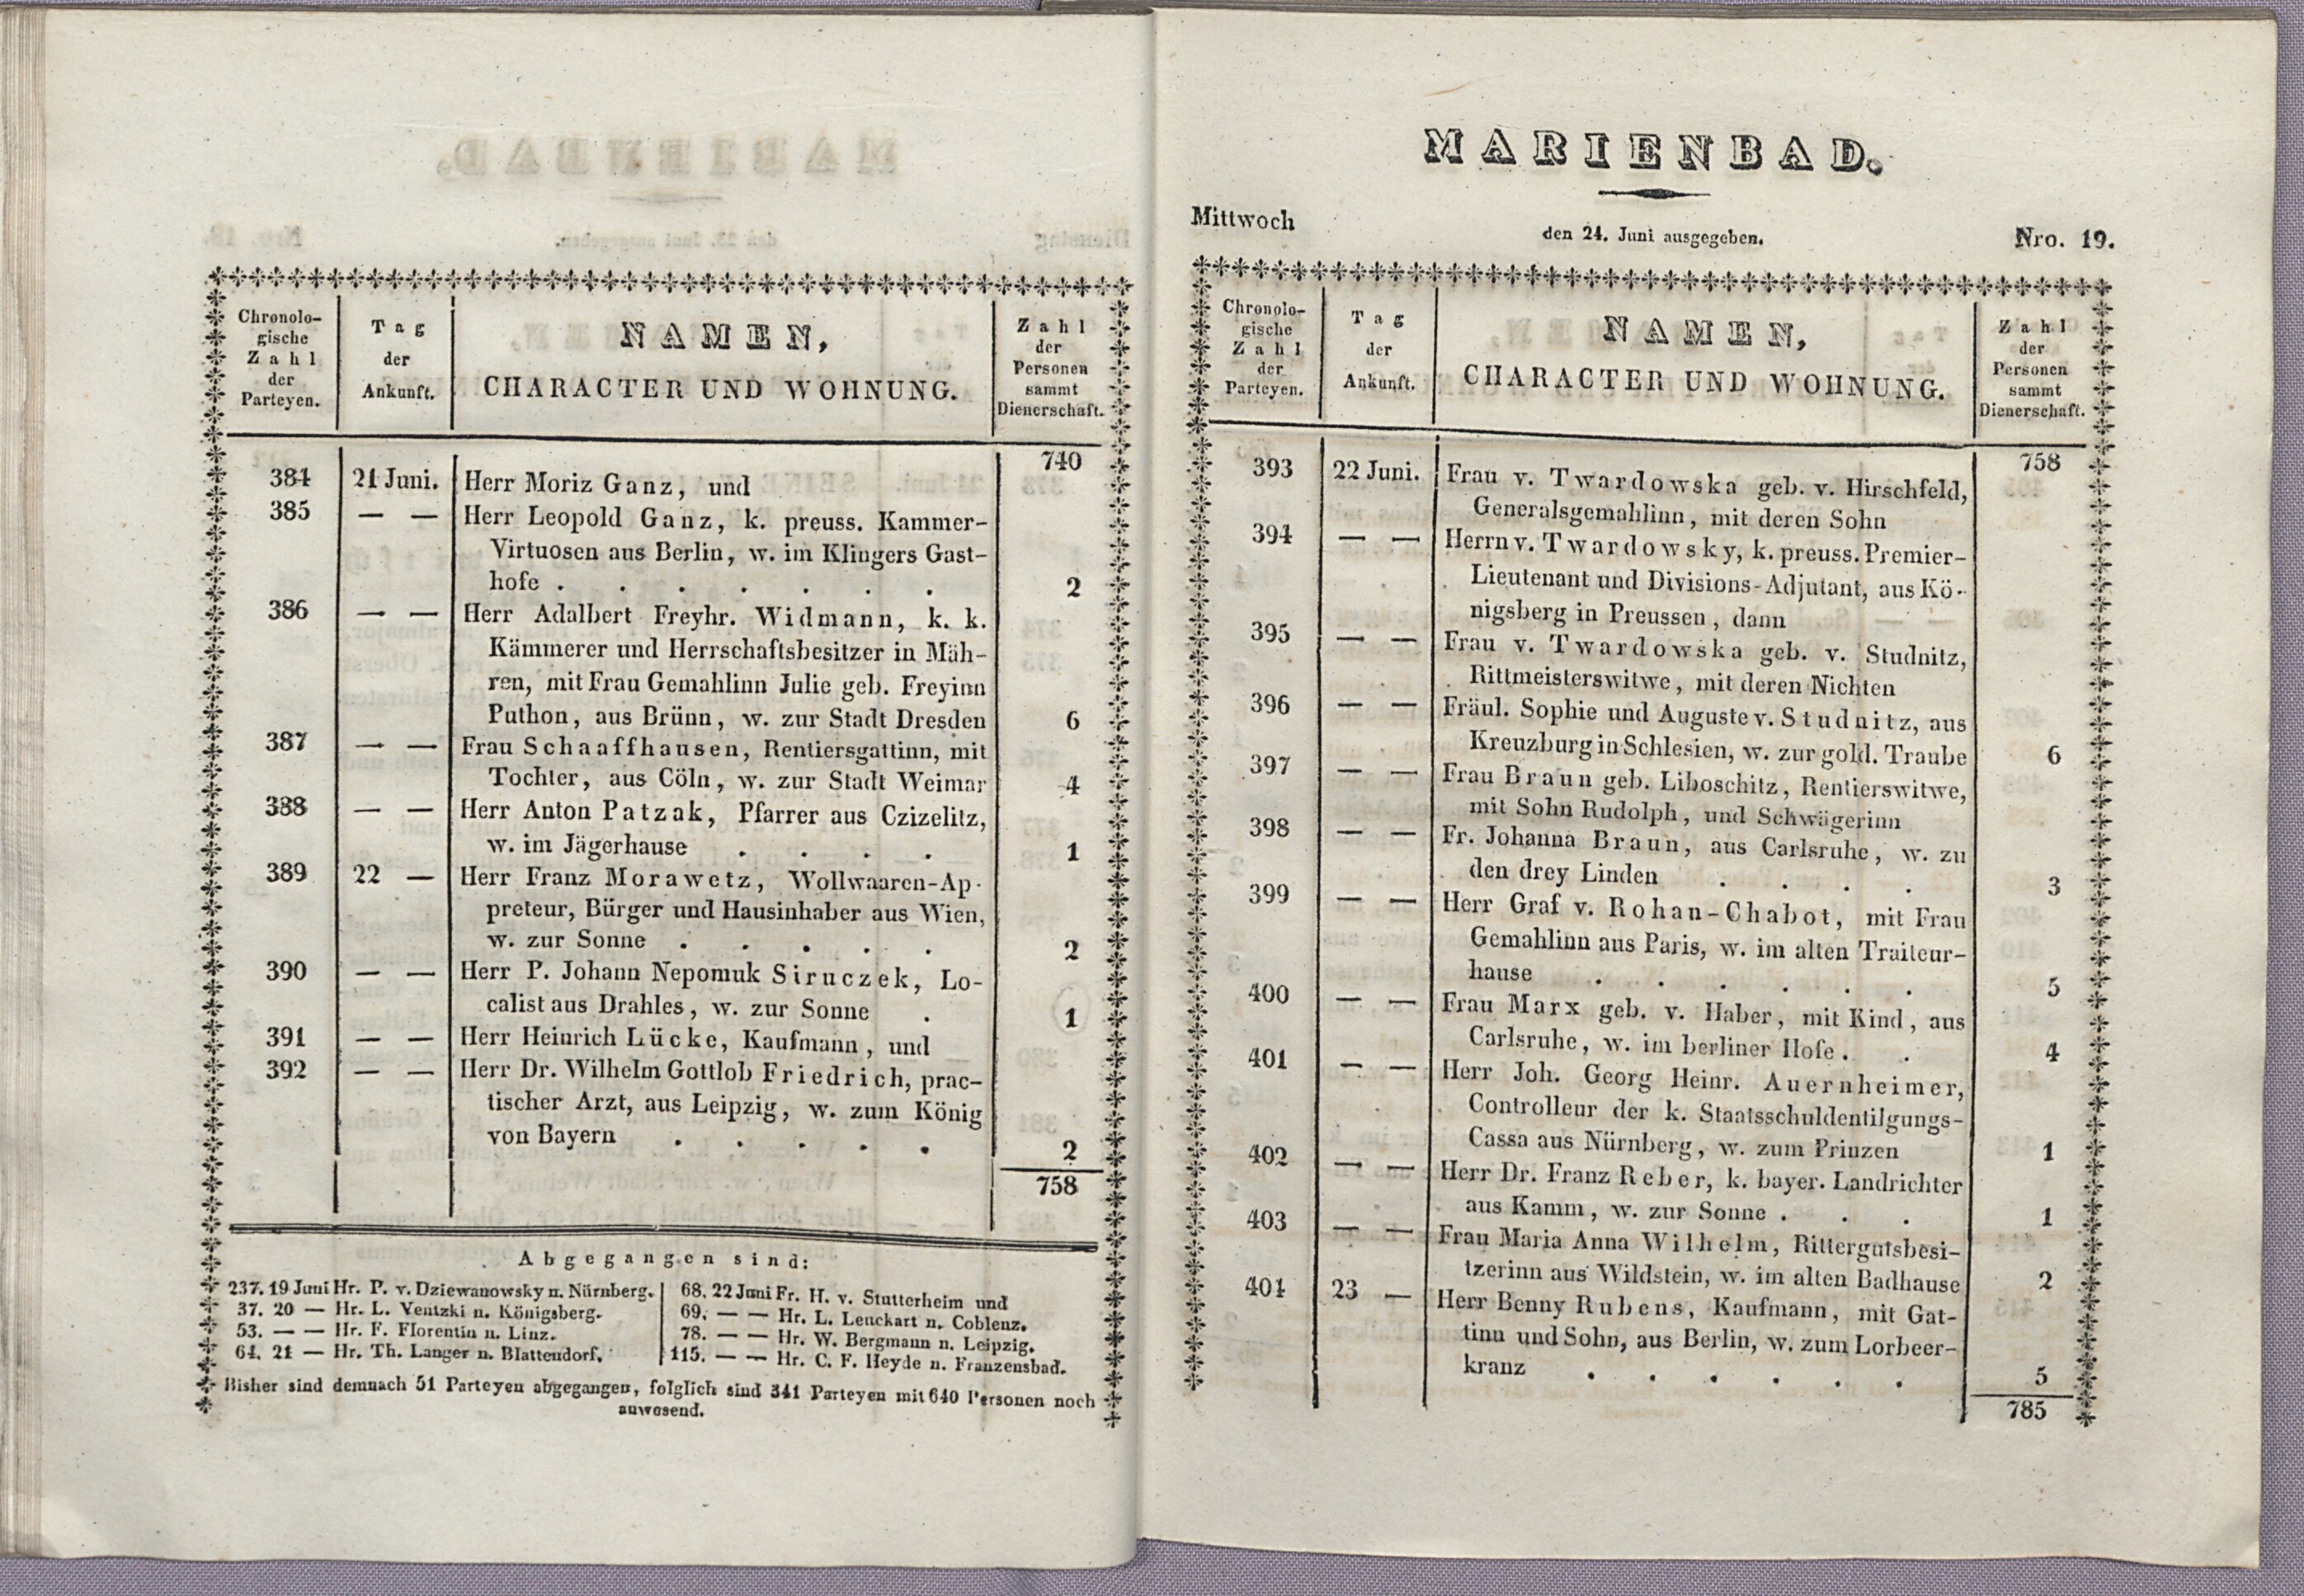 Chronolo-
gische
Zahl
der
Parteyen.
Tag
der
Ankunft.
NAMEN,
CHARACTER UND WOHNUNG.
Zahl
der
Personen
sammt
Dienerschaft.
740
384 21 Juni. Herr Moriz Ganz, und
385 — — Herr Leopold Ganz, k. preuss. Kammer-
Virtuosen aus Berlin, w. im Klingers Gast-
hofe . . . . . . . 2
386 — — Herr Adalbert Freyhr. Widmann, k. k.
Kämmerer und Herrschaftsbesitzer in Mäh-
ren, mit Frau Gemahlinn Julie geb. Freyinn
Puthon, aus Brünn, w. zur Stadt Dresden 6
387 — — Frau Schaaffhausen, Rentiersgattinn, mit
Tochter, aus Cöln, w. zur Stadt Weimar 4
388 — — Herr Anton Patzak, Pfarrer aus Czizelitz,
w. im Jägerhause . . . . 1
389 22 — Herr Franz Morawetz, Wollwaaren-Ap-
preteur, Bürger und Hausinhaber aus Wien,
w. zur Sonne . . . . . 2
390 — — Herr P. Johann Nepomuk Siruczek, Lo-
calist aus Drahles, w. zur Sonne . 1
391 — — Herr Heinrich Lücke, Kaufmann, und
392 — — Herr Dr. Wilhelm Gottlob Friedrich, prac-
tischer Arzt, aus Leipzig, w. zum König
von Bayern . . . . . 2
758
Abgegangen sind:
237. 19 Juni Hr. P. v. Dziewanowsky n. Nürnberg.
37. 20 — Hr. L. Ventzki n. Königsberg.
53. — — Hr. F. Florentin n. Linz.
64. 21 — Hr. Th. Langer n. Blattendorf.
68. 22 Juni Fr. H. v. Stutterheim und
69. — — Hr. L. Leuckart n. Coblenz.
78. — — Hr. W. Bergmann n. Leipzig.
115. — — Hr. C. F. Heyde n. Franzensbad.
Bisher sind demnach 51 Parteyen abgegangen, folglich sind 341 Parteyen mit 640 Personen noch
anwesend.
MARIENBAD.
Mittwoch den 24. Juni ausgegeben. Nro. 19.
Chronolo-
gische
Zahl
der
Parteyen.
Tag
der
Ankunft.
NAMEN,
CHARACTER UND WOHNUNG.
Zahl
der
Personen
sammt
Dienerschaft.
758
393 22 Juni. Frau v. Twardowska geb. v. Hirschfeld,
Generalsgemahlinn, mit deren Sohn
394 — — Herrn v. Twardowsky, k. preuss. Premier-
Lieutenant und Divisions-Adjutant, aus Kö-
nigsberg in Preussen, dann
395 — — Frau v. Twardowska geb. v. Studnitz,
Rittmeisterswitwe, mit deren Nichten
396 — — Fräul. Sophie und Auguste v. Studnitz, aus
Kreuzburg in Schlesien, w. zur gold. Traube 6
397 — — Frau Braun geb. Liboschitz, Rentierswitwe,
mit Sohn Rudolph, und Schwägerinn
398 — — Fr. Johanna Braun, aus Carlsruhe, w. zu
den drey Linden . . . . 3
399 — — Herr Graf v. Rohan-Chabot, mit Frau
Gemahlinn aus Paris, w. im alten Traiteur-
hause . . . . . . 5
400 — — Frau Marx geb. v. Haber, mit Kind, aus
Carlsruhe, w. im berliner Hofe . . 4
401 — — Herr Joh. Georg Heinr. Auernheimer,
Controlleur der k. Staatsschuldentilgungs-
Cassa aus Nürnberg, w. zum Prinzen 1
402 — — Herr Dr. Franz Reber, k. bayer. Landrichter
aus Kamm, w. zur Sonne . . . 1
403 — — Frau Maria Anna Wilhelm, Rittergutsbesi-
tzerinn aus Wildstein, w. im alten Badhause 2
404 23 — Herr Benny Rubens, Kaufmann, mit Gat-
tinn und Sohn, aus Berlin, w. zum Lorbeer-
kranz . . . . . . 5
785